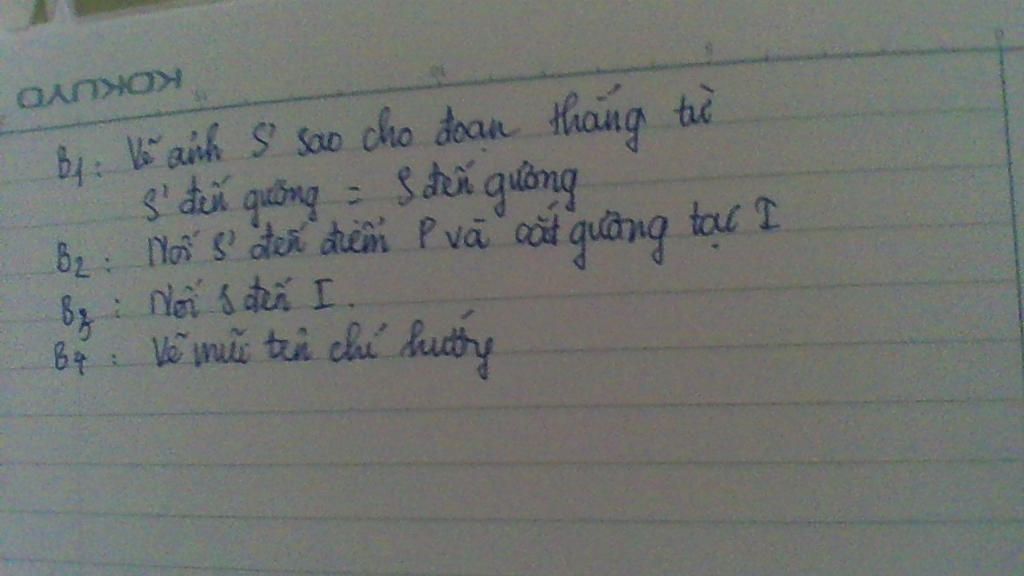 KOKUYO
B1: Vẽ ảnh S' sao cho đoạn thẳng từ
S' đến gương = S đến gương
B2: Nối S' đến điểm P và cắt gương tại I
B3: Nối S đến I.
B4: Vẽ mũi tên chỉ hướng